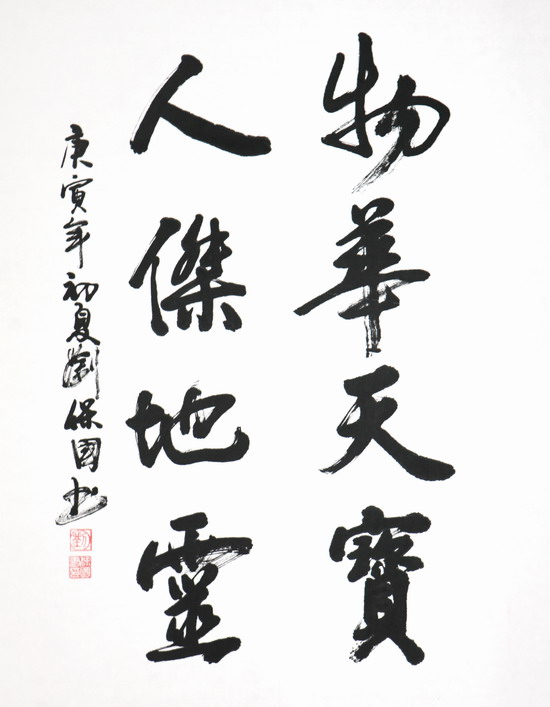 物華天寶
人傑地靈
庚寅年初夏劉保國书